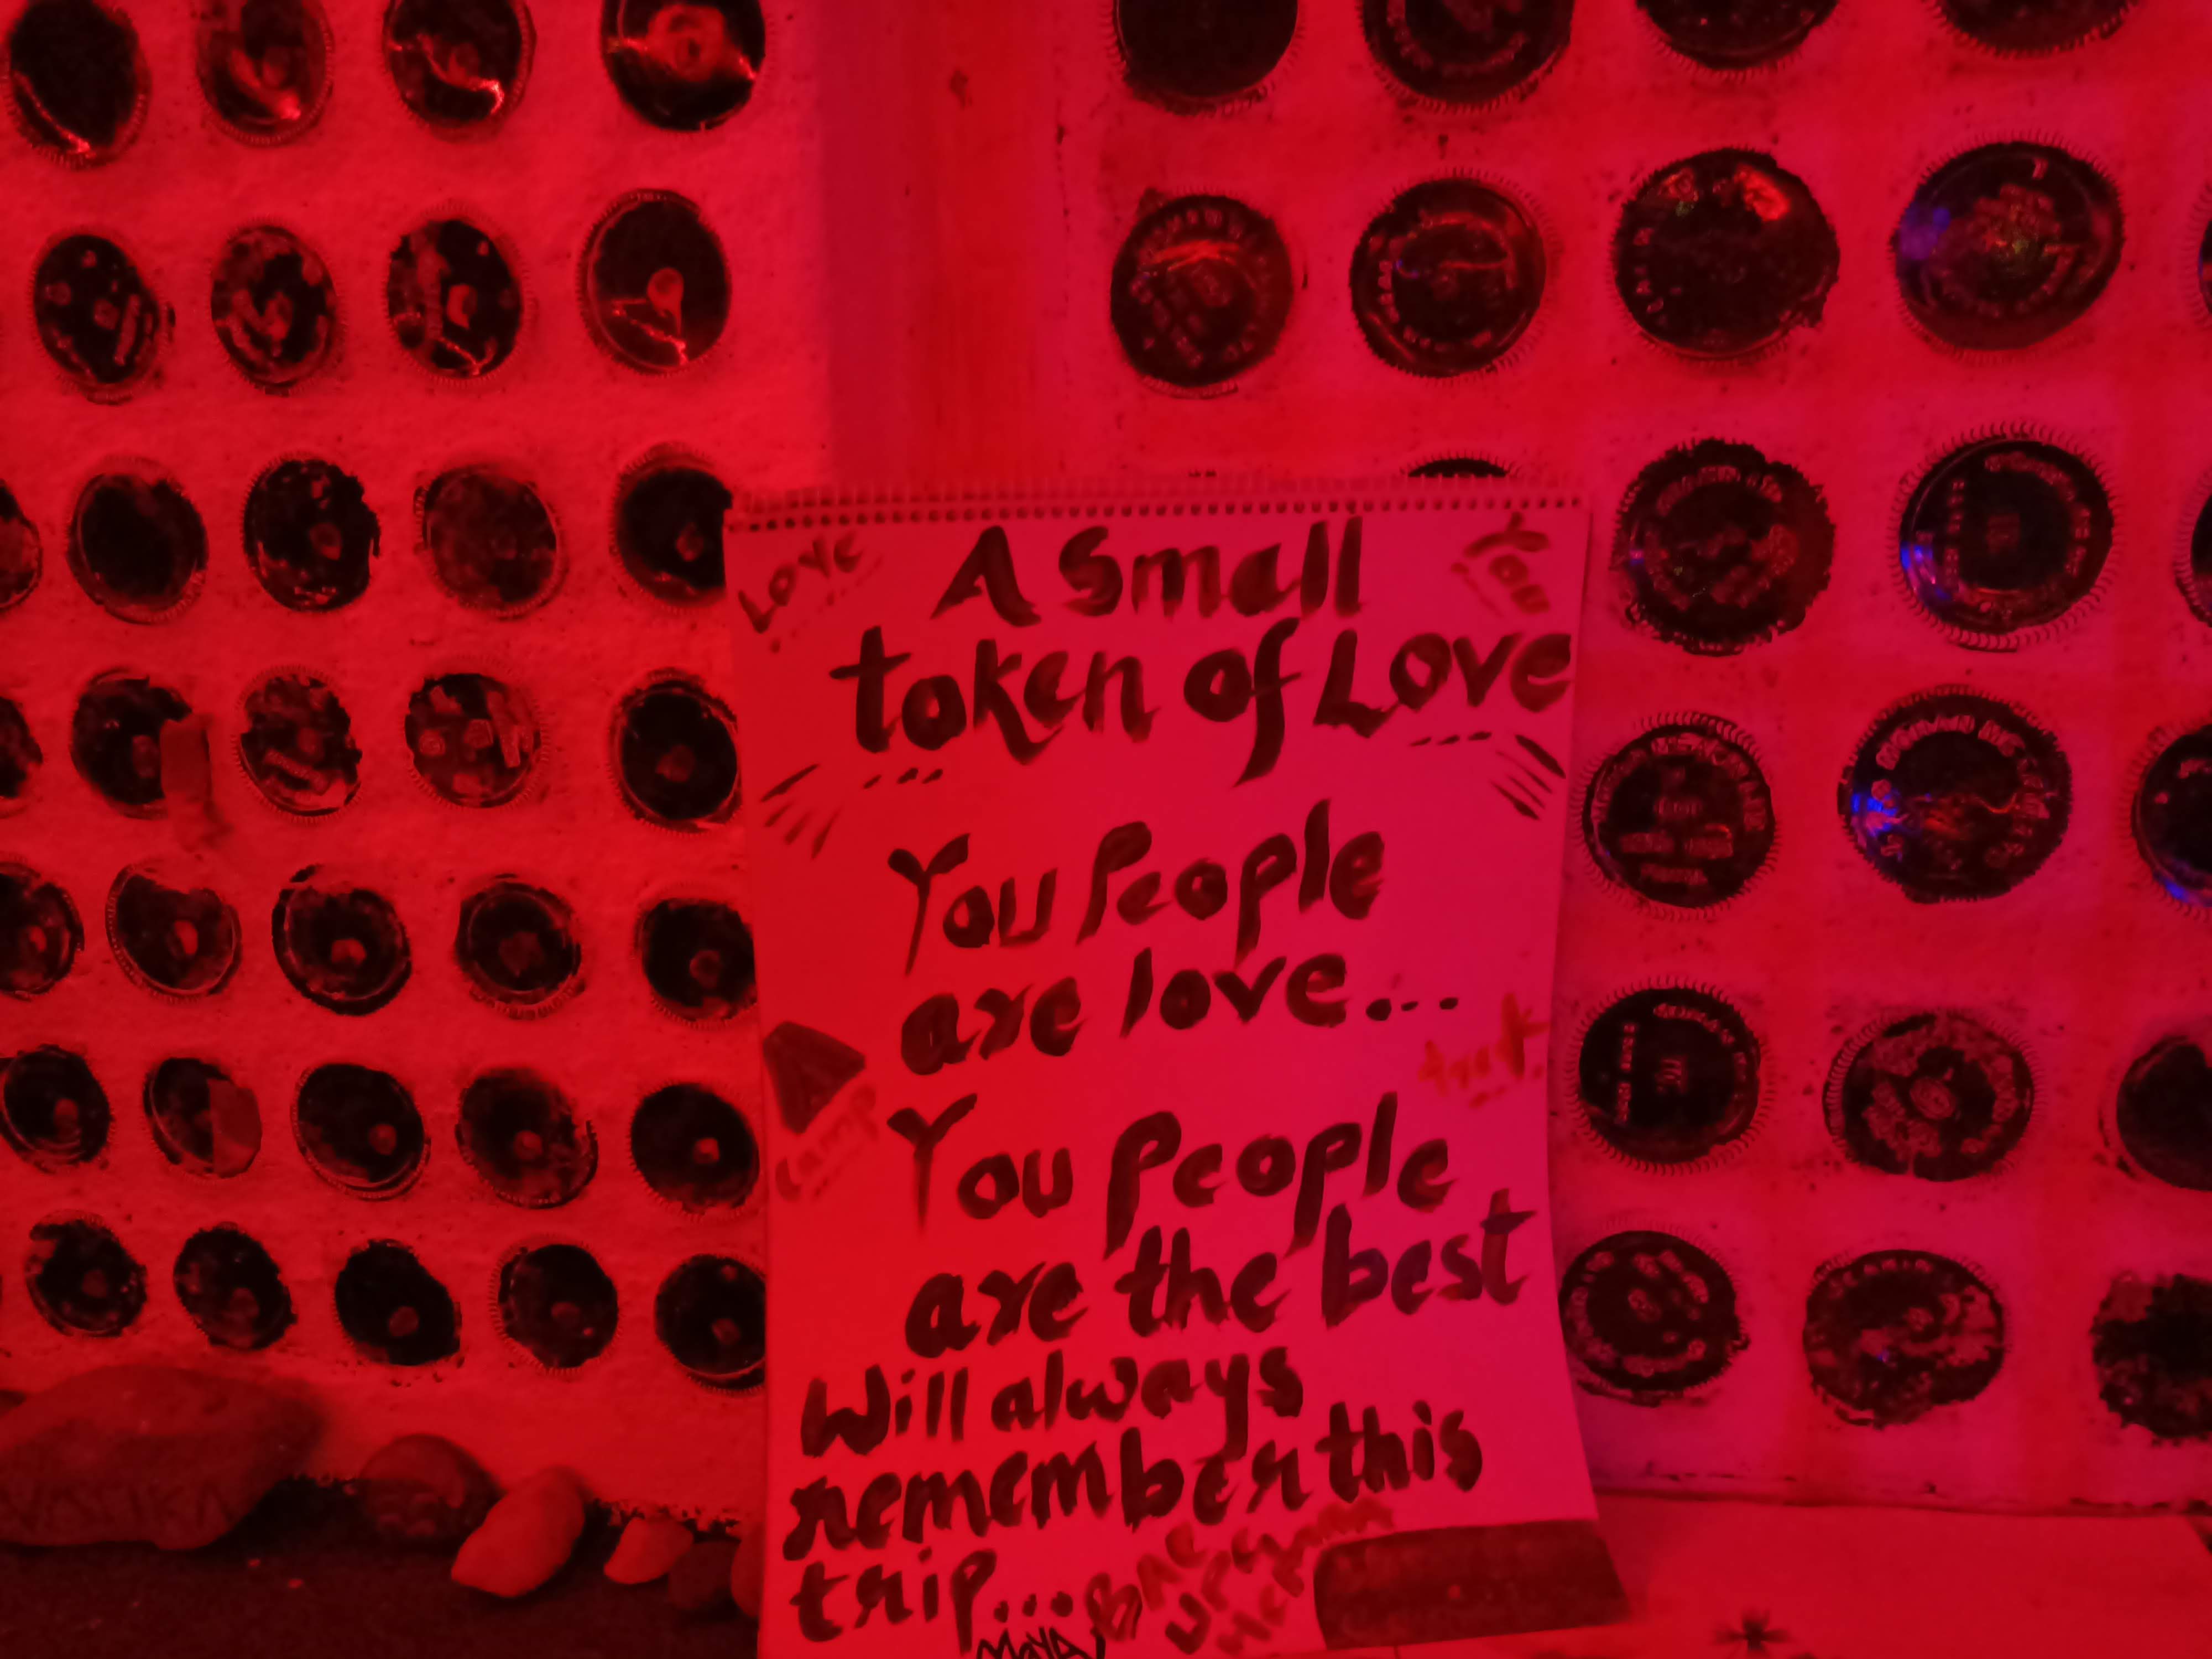 Love
You
A Small
token of Love
You People
are love...
trek
Camp
You People
are the best
Will always
remember this
trip...